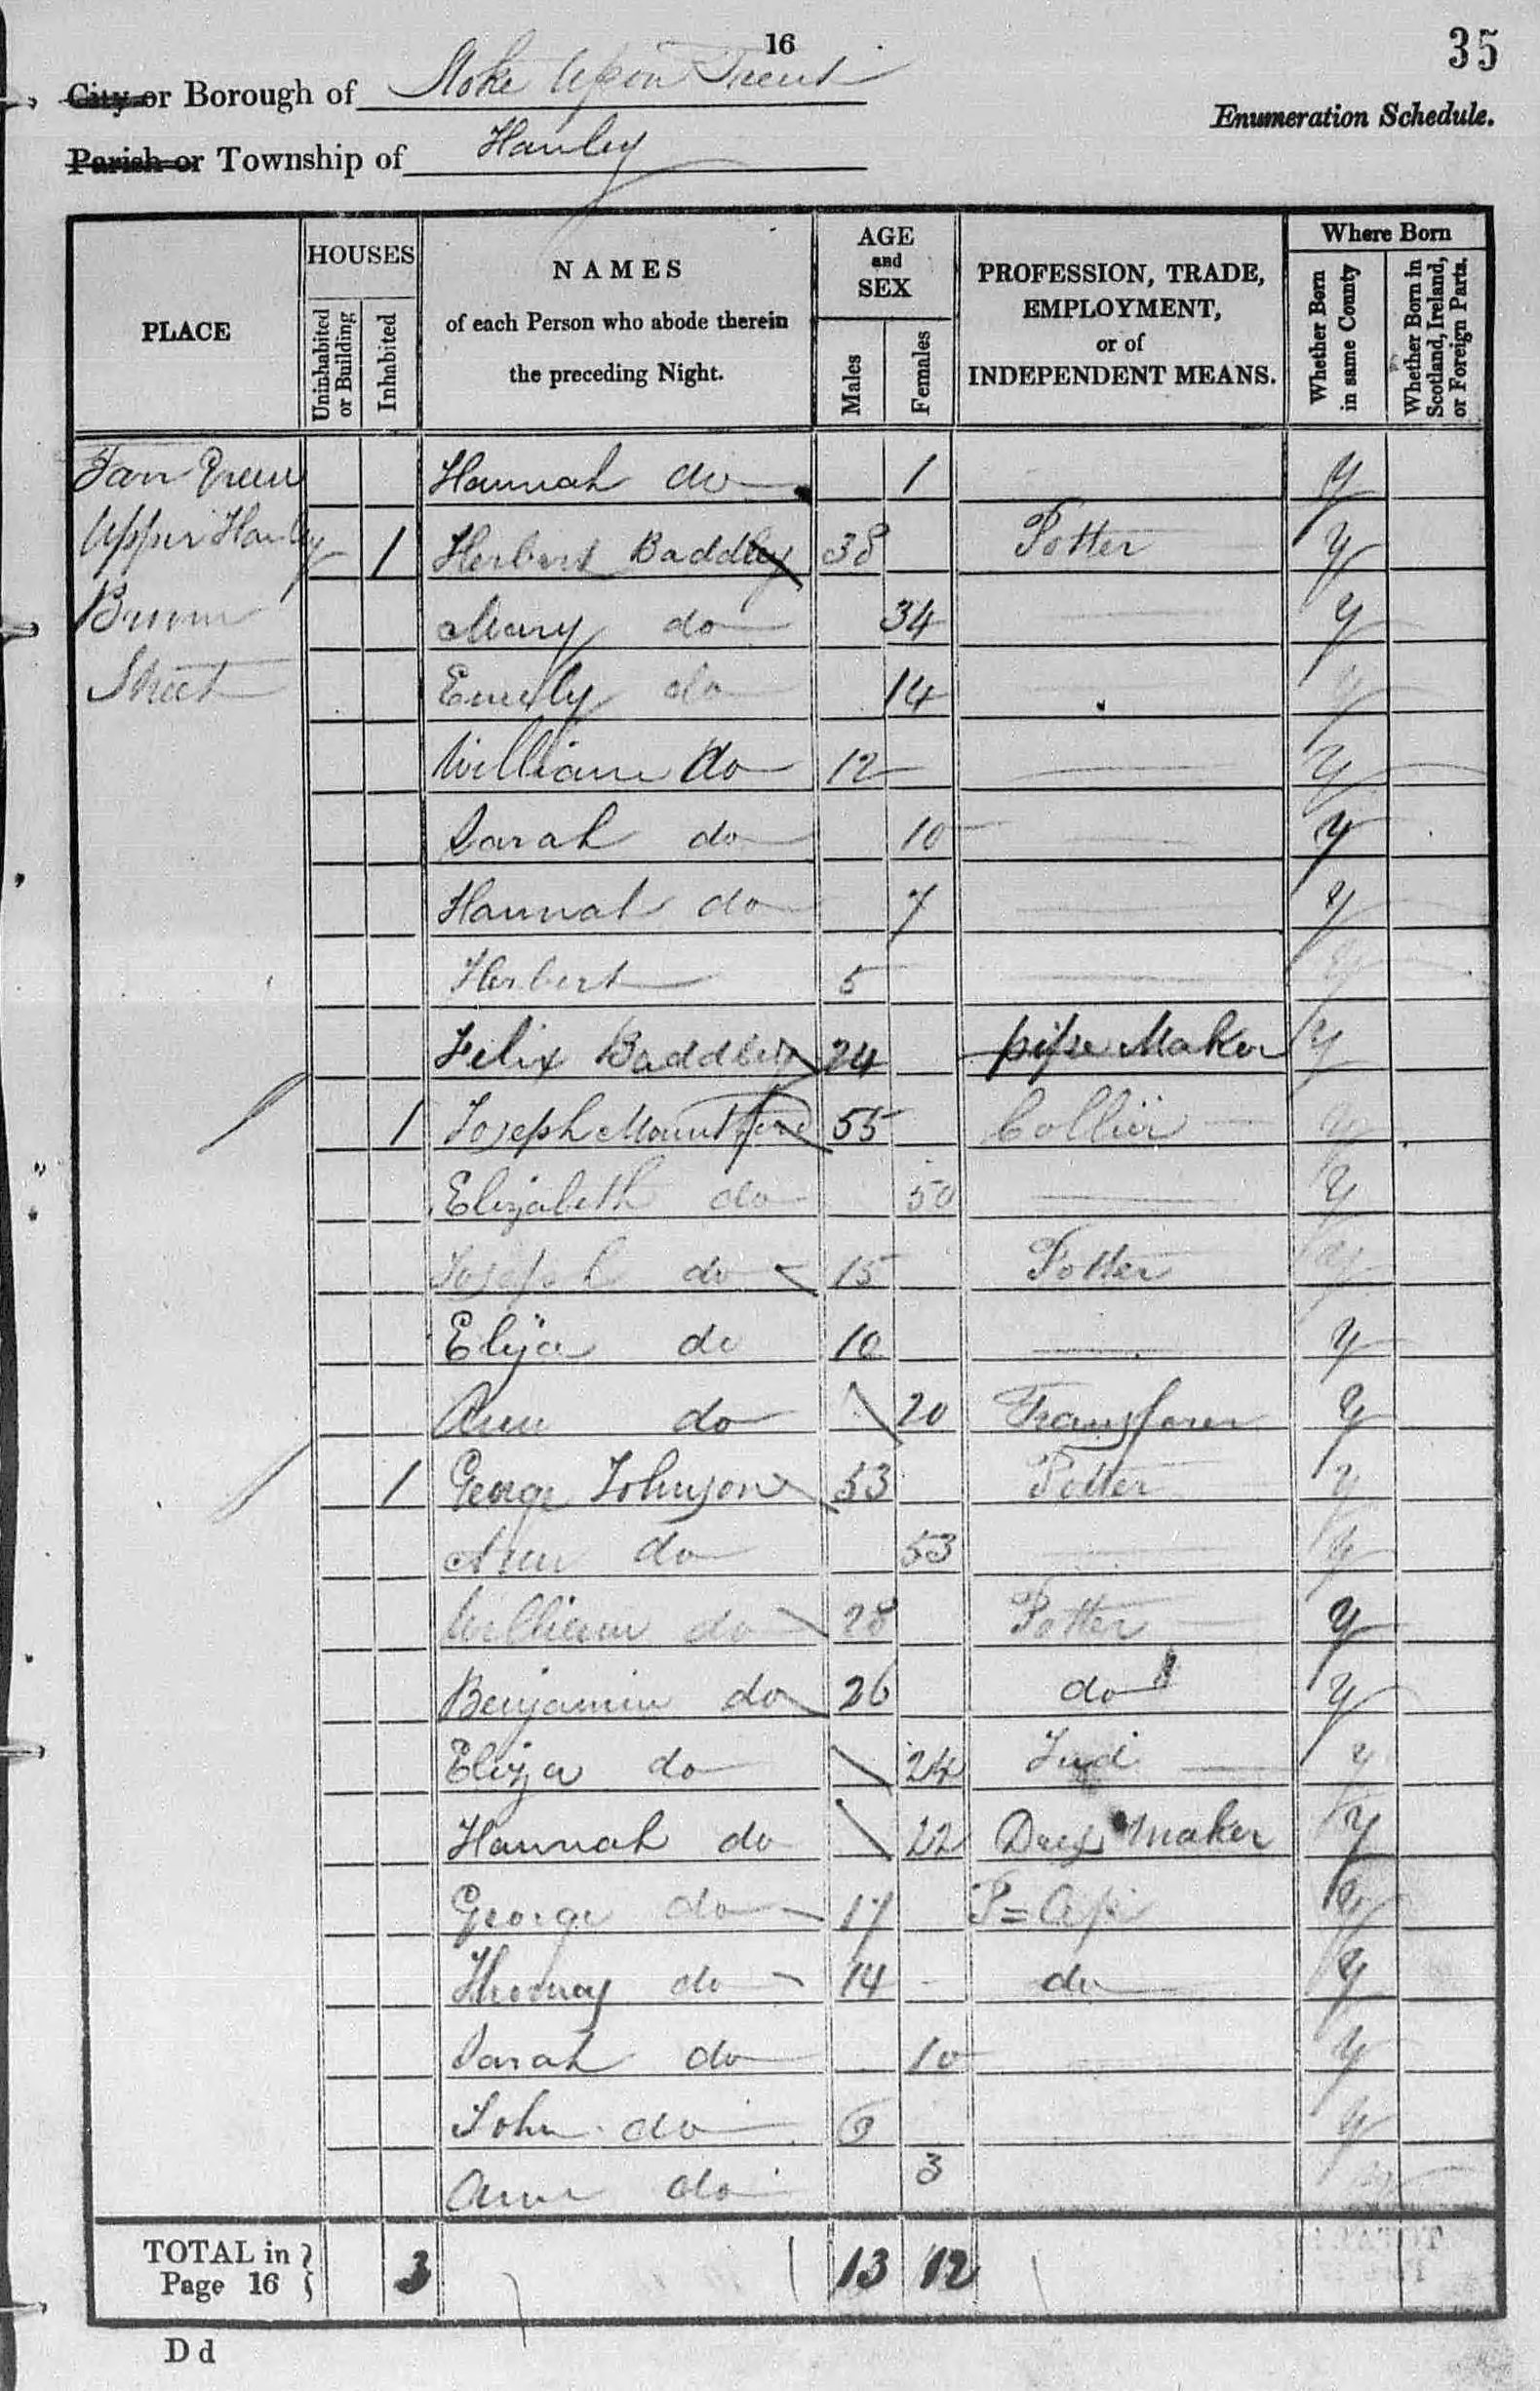 16
35
City or Borough of Stoke Upon Trent
Enumeration Schedule.
Parish or Township of Hanley
PLACE
HOUSES
Uninhabited or Building
Inhabited
NAMES
of each Person who abode therein
the preceding Night.
AGE
and
SEX
Males
Females
PROFESSION, TRADE,
EMPLOYMENT,
or of
INDEPENDENT MEANS.
Where Born
Whether Born in same County
Whether Born in Scotland, Ireland, or Foreign Parts.
Green Hannah do 1 y
Upper Hanley 1 Herbert Baddley 38 Potter y
Mary do 34 y
Street Emily do 14 y
William do 12 y
Sarah do 10 y
Hannah do 7 y
Herbert 5 y
Felix Baddley 24 pipe Maker y
1 Joseph Mountford 55 Collier y
Elizabeth do 50 y
Joseph do 15 Potter y
Elija do 10 y
Ann do 20 Transferer y
1 George Johnson 53 Potter y
Ann do 53 y
William do 28 Potter y
Benjamin do 26 do y
Eliza do 24 Ind y
Hannah do 22 Dress Maker y
George do 17 P = Ap y
Thomas do 14 do y
Sarah do 10 y
John do y
Ann do 3
TOTAL in Page 16 3 13 12
D d